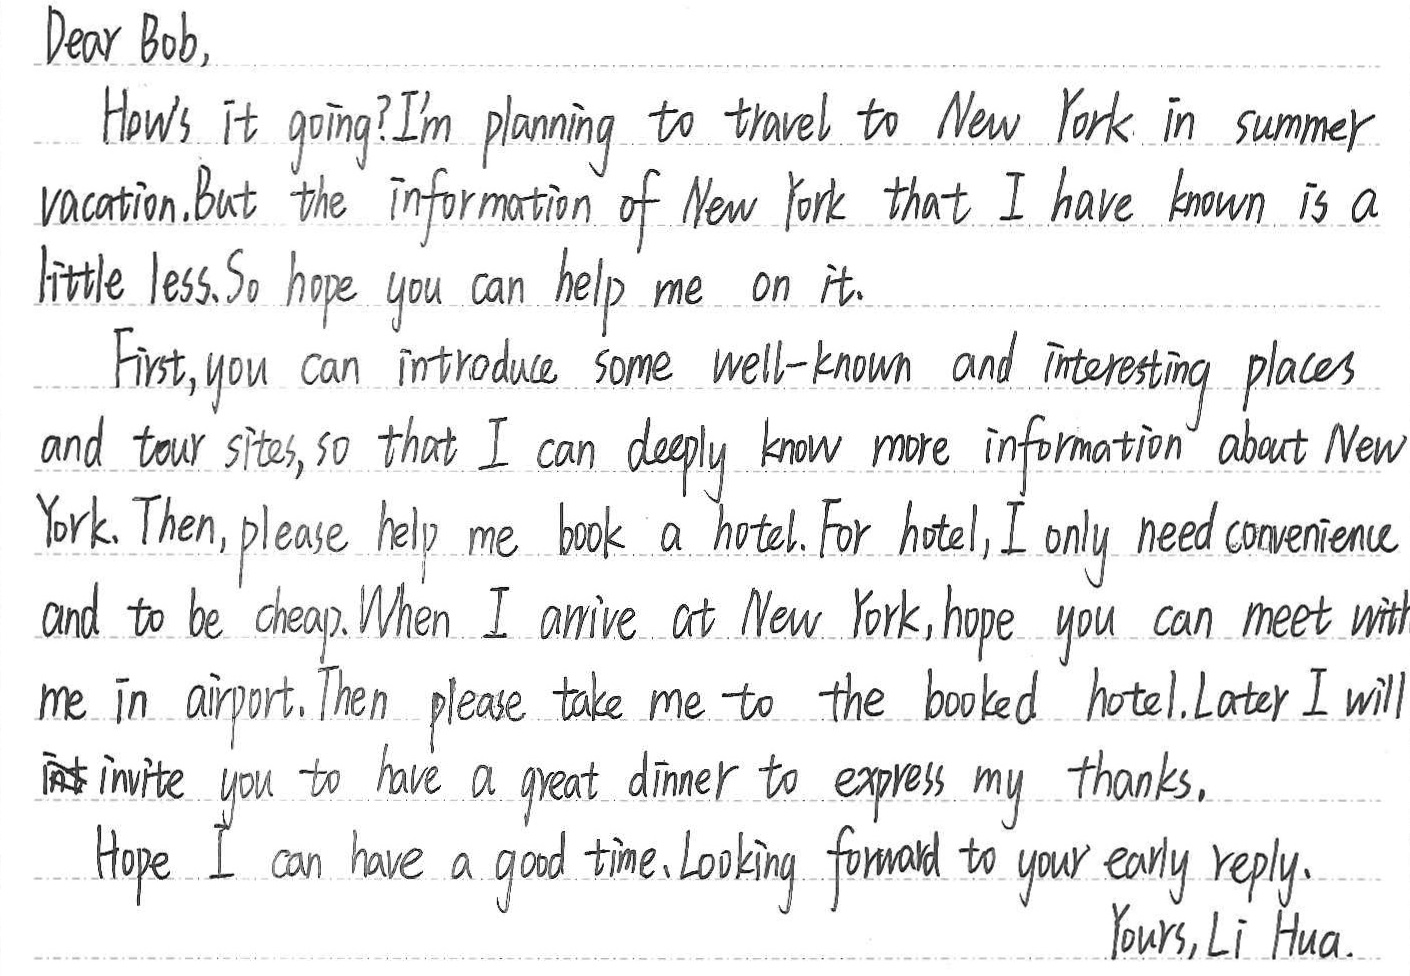 Dear Bob,
How's it going? I'm planning to travel to New York in summer
vacation. But the information of New York that I have known is a
little less. So hope you can help me on it.
First, you can introduce some well-known and interesting places
and tour sites, so that I can deeply know more information about New
York. Then, please help me book a hotel. For hotel, I only need convenience
and to be cheap. When I arrive at New York, hope you can meet with
me in airport. Then please take me to the booked hotel. Later I will
invite you to have a great dinner to express my thanks.
Hope I can have a good time. Looking forward to your early reply.
Yours, Li Hua.